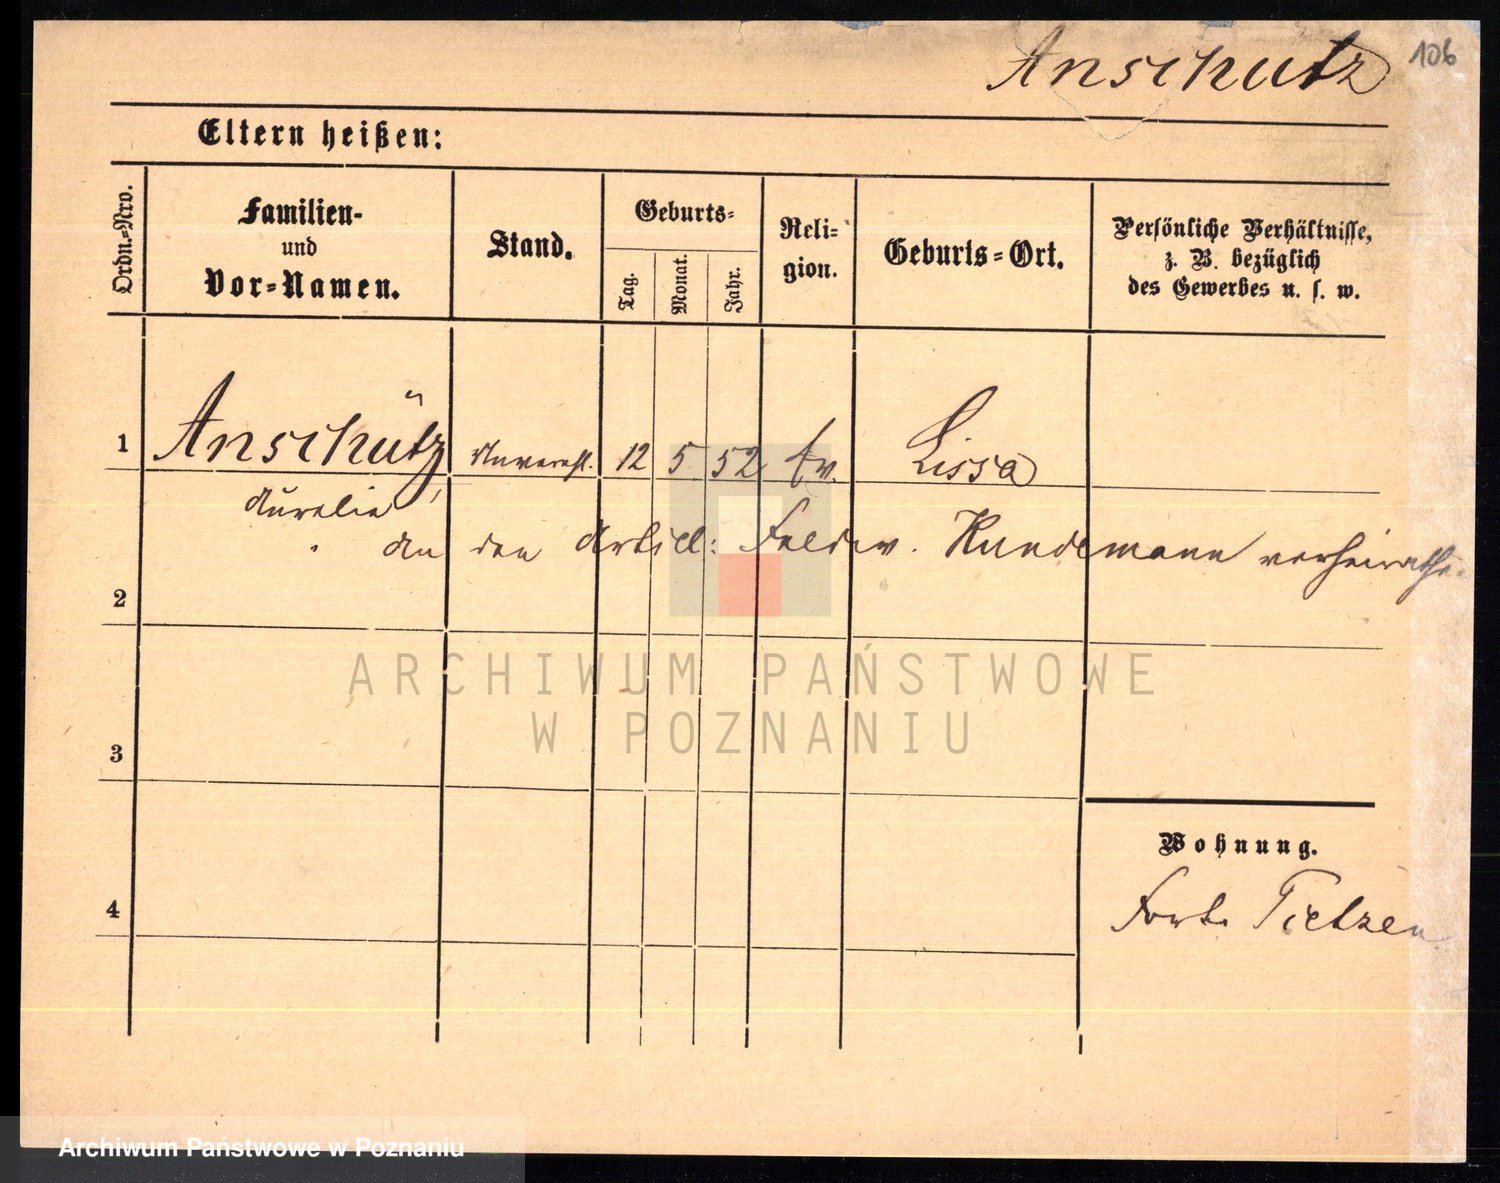 Anschütz 106
Eltern heißen:
Ordn.=Nro.
Familien-
und
Vor=Namen.
Stand.
Geburts=
Tag.
Monat.
Jahr.
Reli=
gion.
Geburts=Ort.
Persönliche Verhältnisse,
z. B. bezüglich
des Gewerbes u. s. w.
1 Anschütz, unverehl. 12 5 52 ev. Lissa
Aurelie
An den Artill: Feldw. Hundemann verheirathe.
2
ARCHIWUM PAŃSTWOWE
W POZNANIU
3
Wohnung.
4 Fort Tietzen
Archiwum Państwowe w Poznaniu